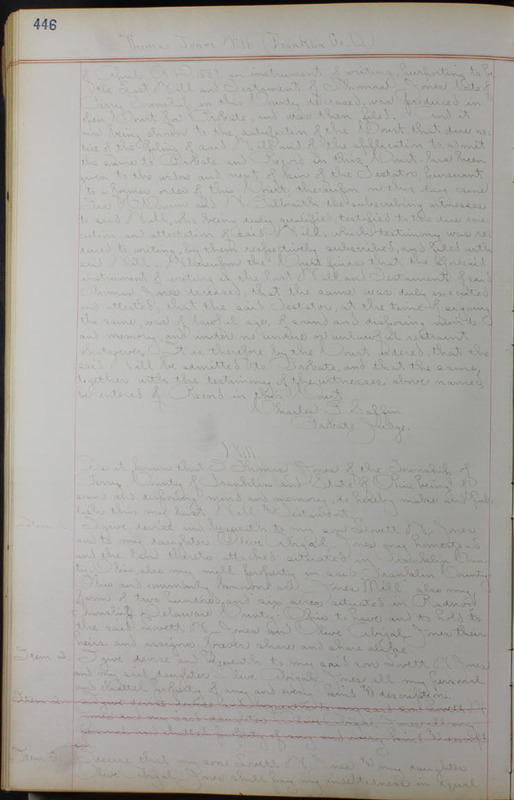 446
Thomas Jones Will (Franklin Co. O.)
of April A.D. 1889 an instrument of writing purporting to be
the Last Will and Testament of Thomas Jones late of
Perry Township in this County deceased, was produced in
open Court for Probate, and was then filed. And it
now being shown to the satisfaction of the Court that due no-
tice of the filing of said Will and of the application to admit
the same to Probate and Record in this Court has been
given to the widow and next of kin of the Testator pursuant
to a former order of this Court, thereupon on this day came
the subscribing witnesses
to said Will, who being duly qualified, testified to the due exe-
cution and attestation of said Will, which testimony was re-
duced to writing, by them respectively subscribed, and filed with
said Will. Whereupon the Court finds that the aforesaid
instrument of writing is the Last Will and Testament of said
Thomas Jones deceased, that the same was duly executed
and attested, that the said Testator, at the time of signing
the same, was of lawful age, of sound and disposing mind
and memory, and under no undue or unlawful restraint
whatsoever. It is therefore by the Court ordered that the
said Will be admitted to Probate, and that the same,
together with the testimony of the witnesses above named
be entered of Record in this Court.
Charles G. Saffin
Probate Judge.
Will.
Be it known that I Thomas Jones of the Township of
Perry County of Franklin and State of Ohio being of
sound and disposing mind and memory, do hereby make and pub-
lish this my Last Will & Testament.
Item I give devise and bequeath to my son Lovett Jones
and to my daughter Olive Abigal Jones my homestead
and the land thereto attached situated in Franklin Coun-
ty Ohio also my mill property in said Franklin County
Ohio and commonly known as Jones Mill also my
farm of two hundred and six acres situated in Radnor
Township Delaware County Ohio to have and to hold to
the said Lovett Jones and Olive Abigal Jones their
heirs and assigns forever share and share alike
Item 2 I give devise and bequeath to my said son Lovett Jones
and my said daughter Olive Abigal Jones all my personal
and chattel property of any and every kind & description
Item 2 I give devise and bequeath to my said son Lovett
Jones and my said daughter Olive Abigal Jones all my
personal and chattel property of any and every kind & descript
Item 3 I desire that my son Lovett Jones & my daughter
Olive Abigal Jones shall pay my indebtedness in equal